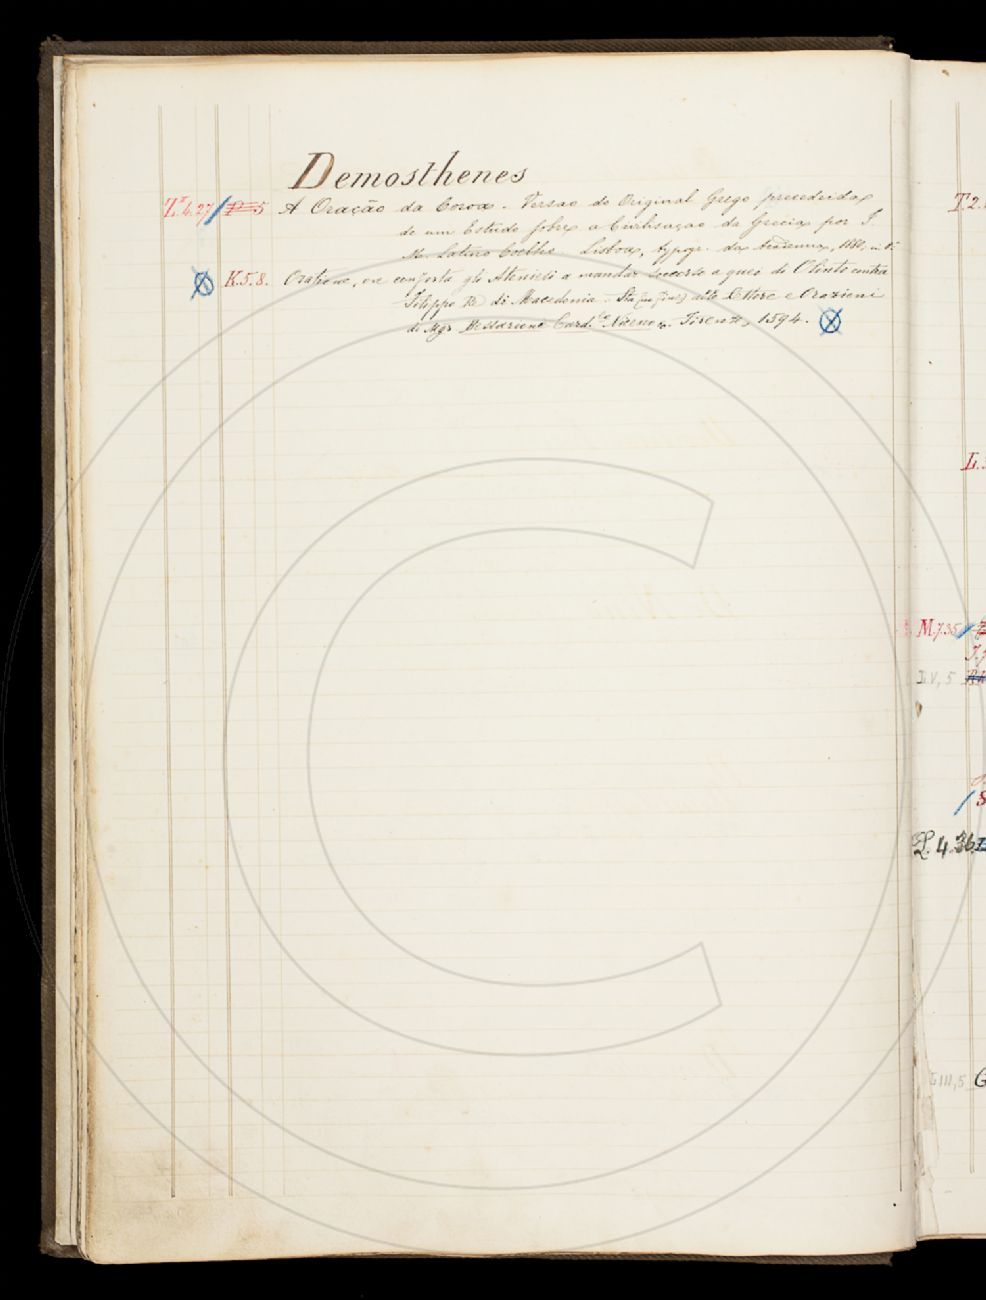 Demosthenes
Z.4.27 A Oração da Coroa. Versao do Original Grego precedida
de um Estudo sobre a Civilisaçao da Grecia por J.
M. Latino Coelho. Lisboa, typogr. da Academia, 1880, in 8º
K.5.8. Oratione, ove conforta gli Ateniesi a mandar soccorso a quei di Olinto contra
Filippo Re di Macedonia. Sta (in fine) alle Lettere e Orazioni
di Mgr Bessarione Card.le Niceno. Firenze, 1594.
T.2.
L.
M.7.35
L.V, 5
L. 4.36
L III, 5